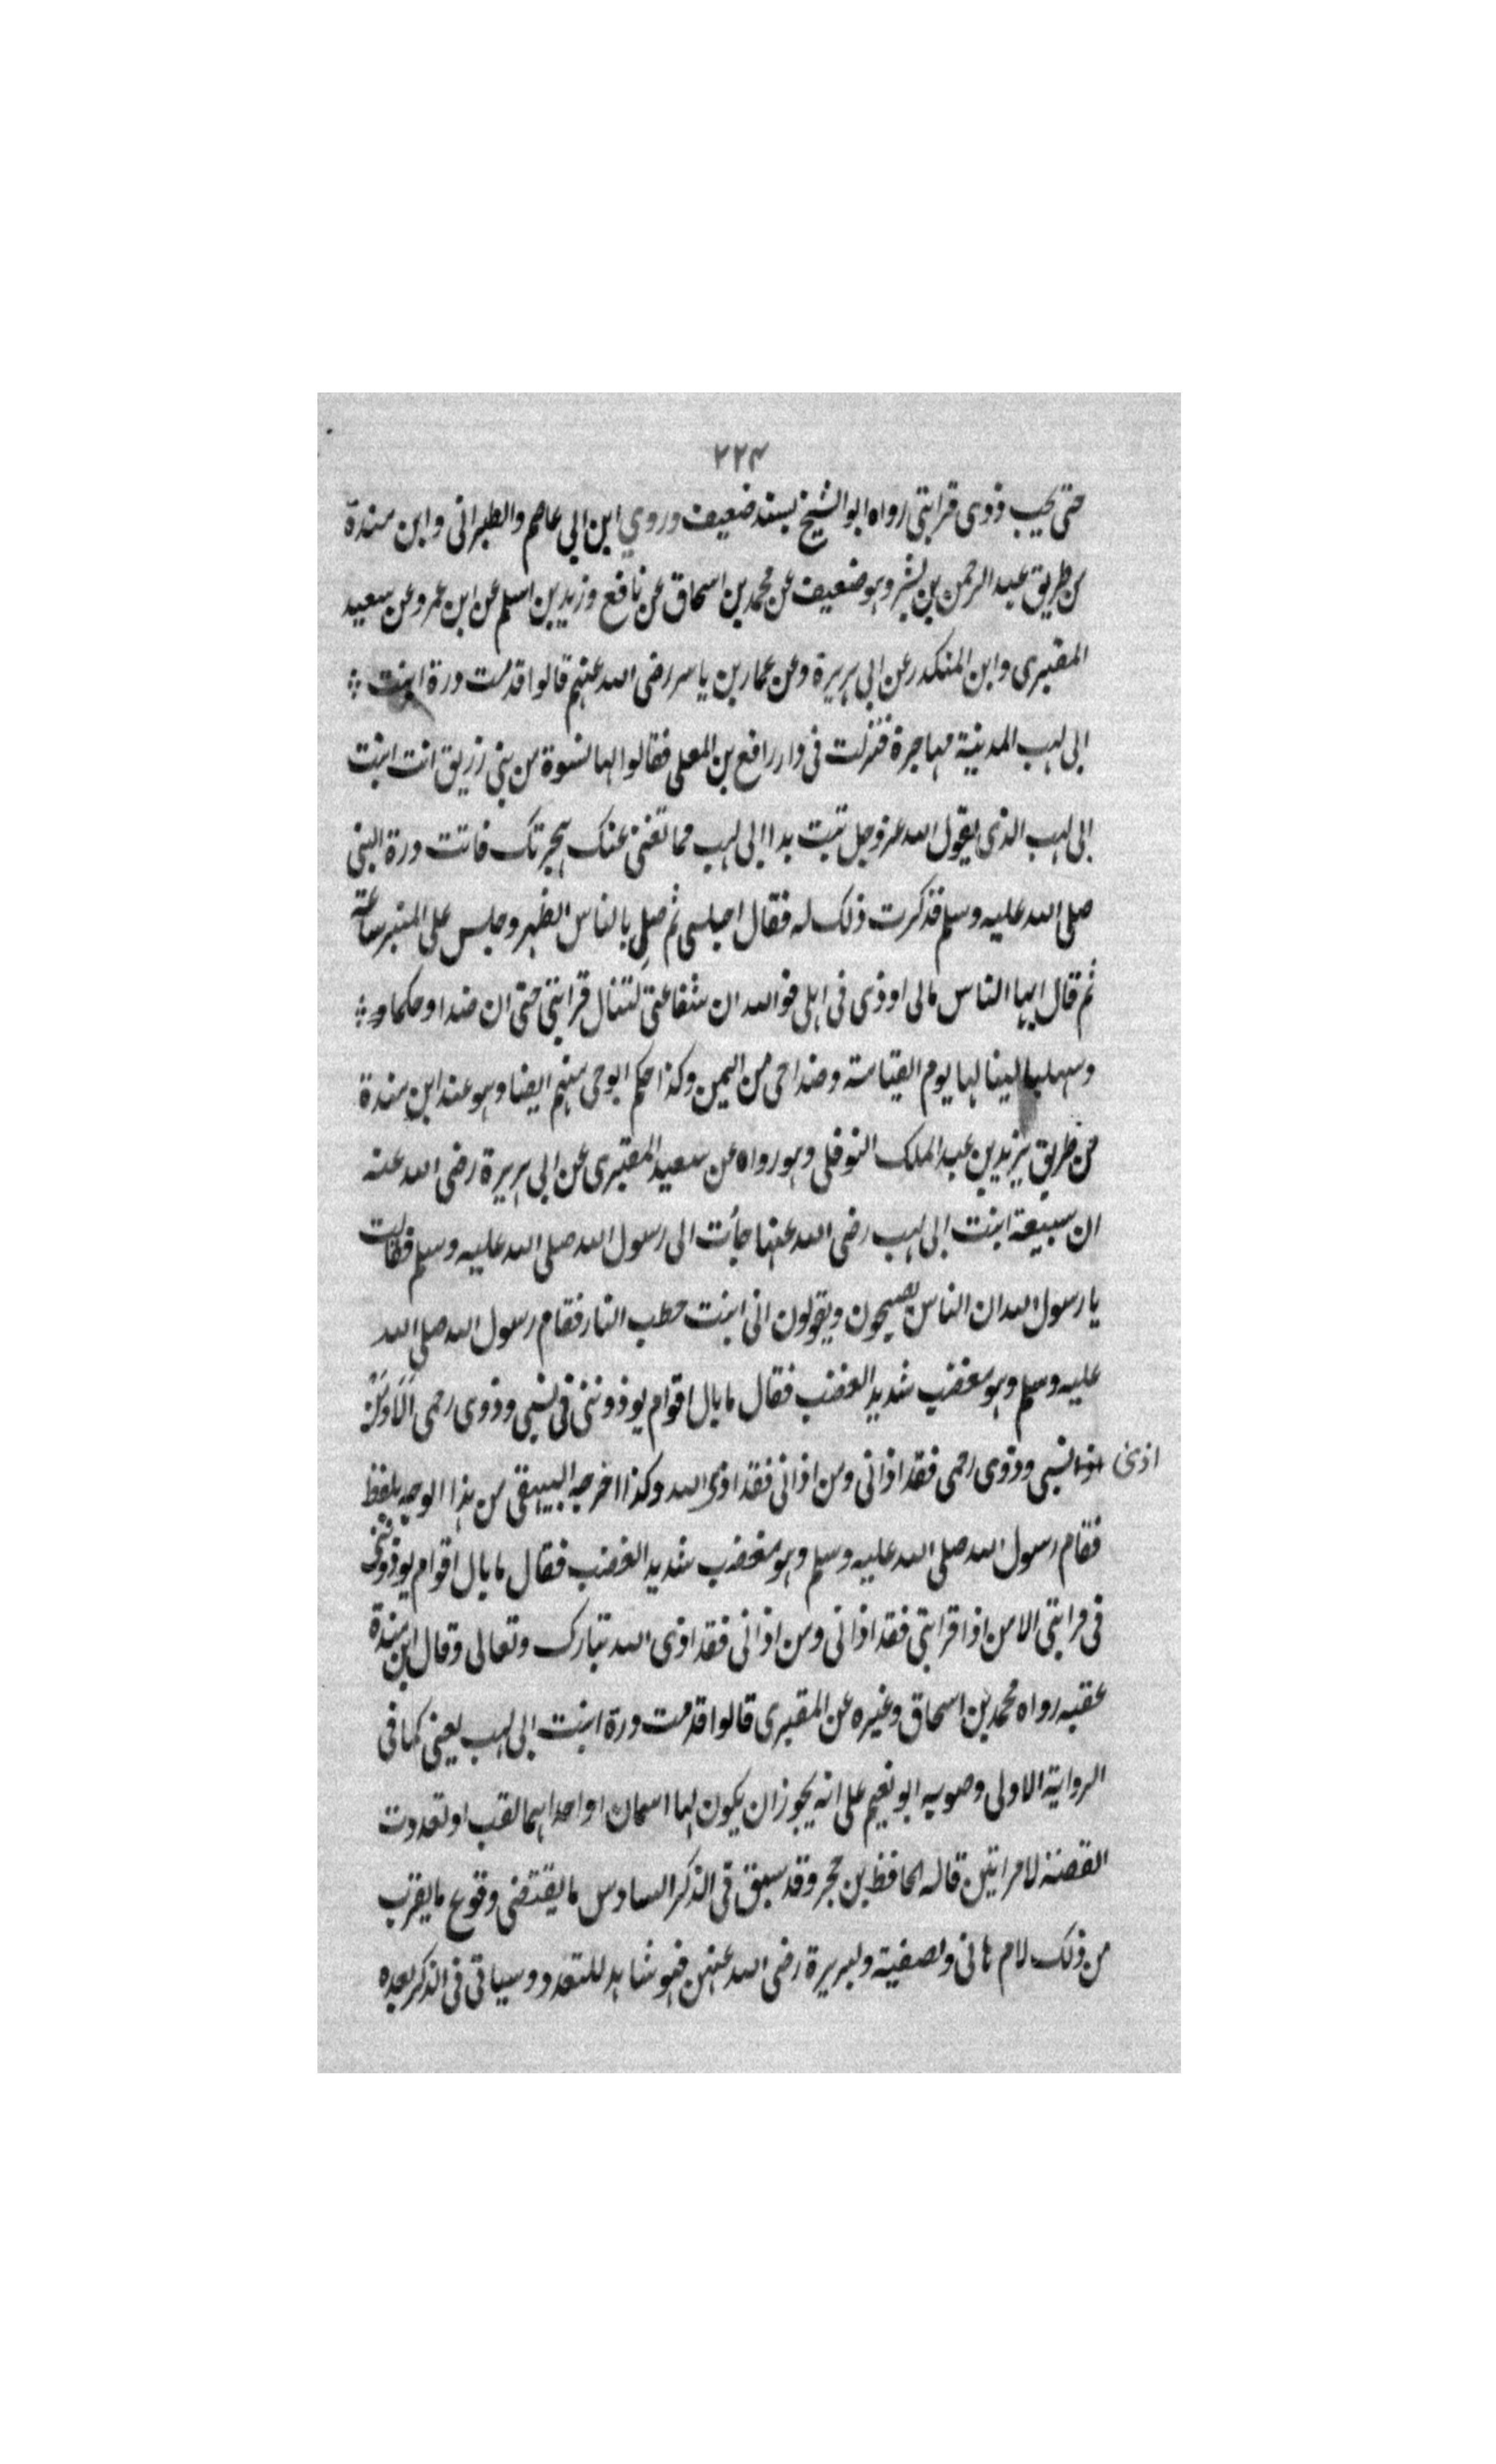 ٢٢٤
حتى يحب ذوى قرابتى رواه ابو الشيخ بسند ضعيف وروي ابن ابي عاصم والطبرانى وابن مندة
من طريق عبد الرحمن بن بشر وهو ضعيف عن محمد بن اسحاق عن نافع وزيد بن اسلم عن ابن عمر وعن سعيد
المقبرى وابن المنكدر عن ابي هريرة وعن عمار بن ياسر رضى الله عنهم قالوا قدمت درة ابنت
ابى لهب المدينة مهاجرة فنزلت فى دار رافع بن المعلى فقالوا لها نسوة من بنى زريق انت ابنت
ابى لهب الذى يقول الله عز وجل تبت يدا ابى لهب فما تغنى عنك هجرتك فاتت درة النبى
صلى الله عليه وسلم فذكرت ذلك له فقال اجلسى ثم صلى بالناس الظهر وجلس على المنبر ساعة
ثم قال ايها الناس مالى اوذى فى اهلى فوالله ان شفاعتى لتنال قرابتى حتى ان صداء وحكما و
وسهلبا لينالها يوم القيامة وصداحى من اليمن وكذا حكم ابوحى منهم ايضا وهو عند ابن مندة
من طريق يزيد بن عبد الملك النوفلى وهو رواه عن سعيد المقبرى عن ابى هريرة رضى الله عنه
ان سبيعة ابنت ابى لهب رضى الله عنها جأت الى رسول الله صلى الله عليه وسلم فقالت
يا رسول الله ان الناس يصيحون ويقولون انى ابنت حطب النار فقام رسول الله صلى الله
عليه وسلم وهو مغضب شديد الغضب فقال ما بال اقوام يوذوننى فى نسبى وذوى رحمى الا ومن
اذى نسبى وذوى رحمى فقد اذانى ومن اذانى فقد اذى الله وكذا اخرجه البيهقى من هذا الوجه بلفظ
فقام رسول الله صلى الله عليه وسلم وهو مغضب شديد الغضب فقال ما بال اقوام يوذوننى
فى قرابتى الا من اذا قرابتى فقد اذانى ومن اذانى فقد اذى الله تبارك وتعالى وقال ابن مندة
عقبه رواه محمد بن اسحاق وغيره عن المقبرى قالوا قدمت درة ابنت ابى لهب يعنى كما فى
الرواية الاولى وصوبه ابو نعيم على انه يجوز ان يكون لها اسمان او احداهما لقب او تعددت
القصة لامراتين قاله الحافظ بن حجر وقد سبق فى الذكر السادس ما يقتضى وقوع ما يقرب
من ذلك لام هانى ولصفية ولبريرة رضى الله عنهن فهو شاهد للتعدد وسياتى فى الذكر بعده